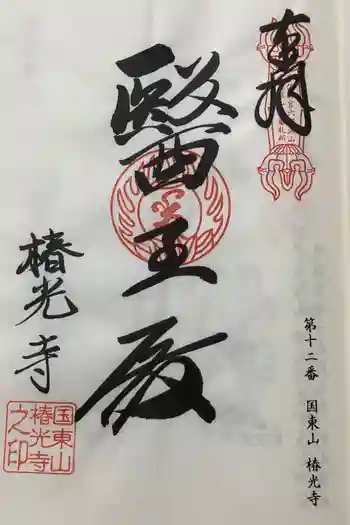 奉拝
醫王殿
椿光寺
国東山
椿光寺
之印
第十二番 国東山 椿光寺